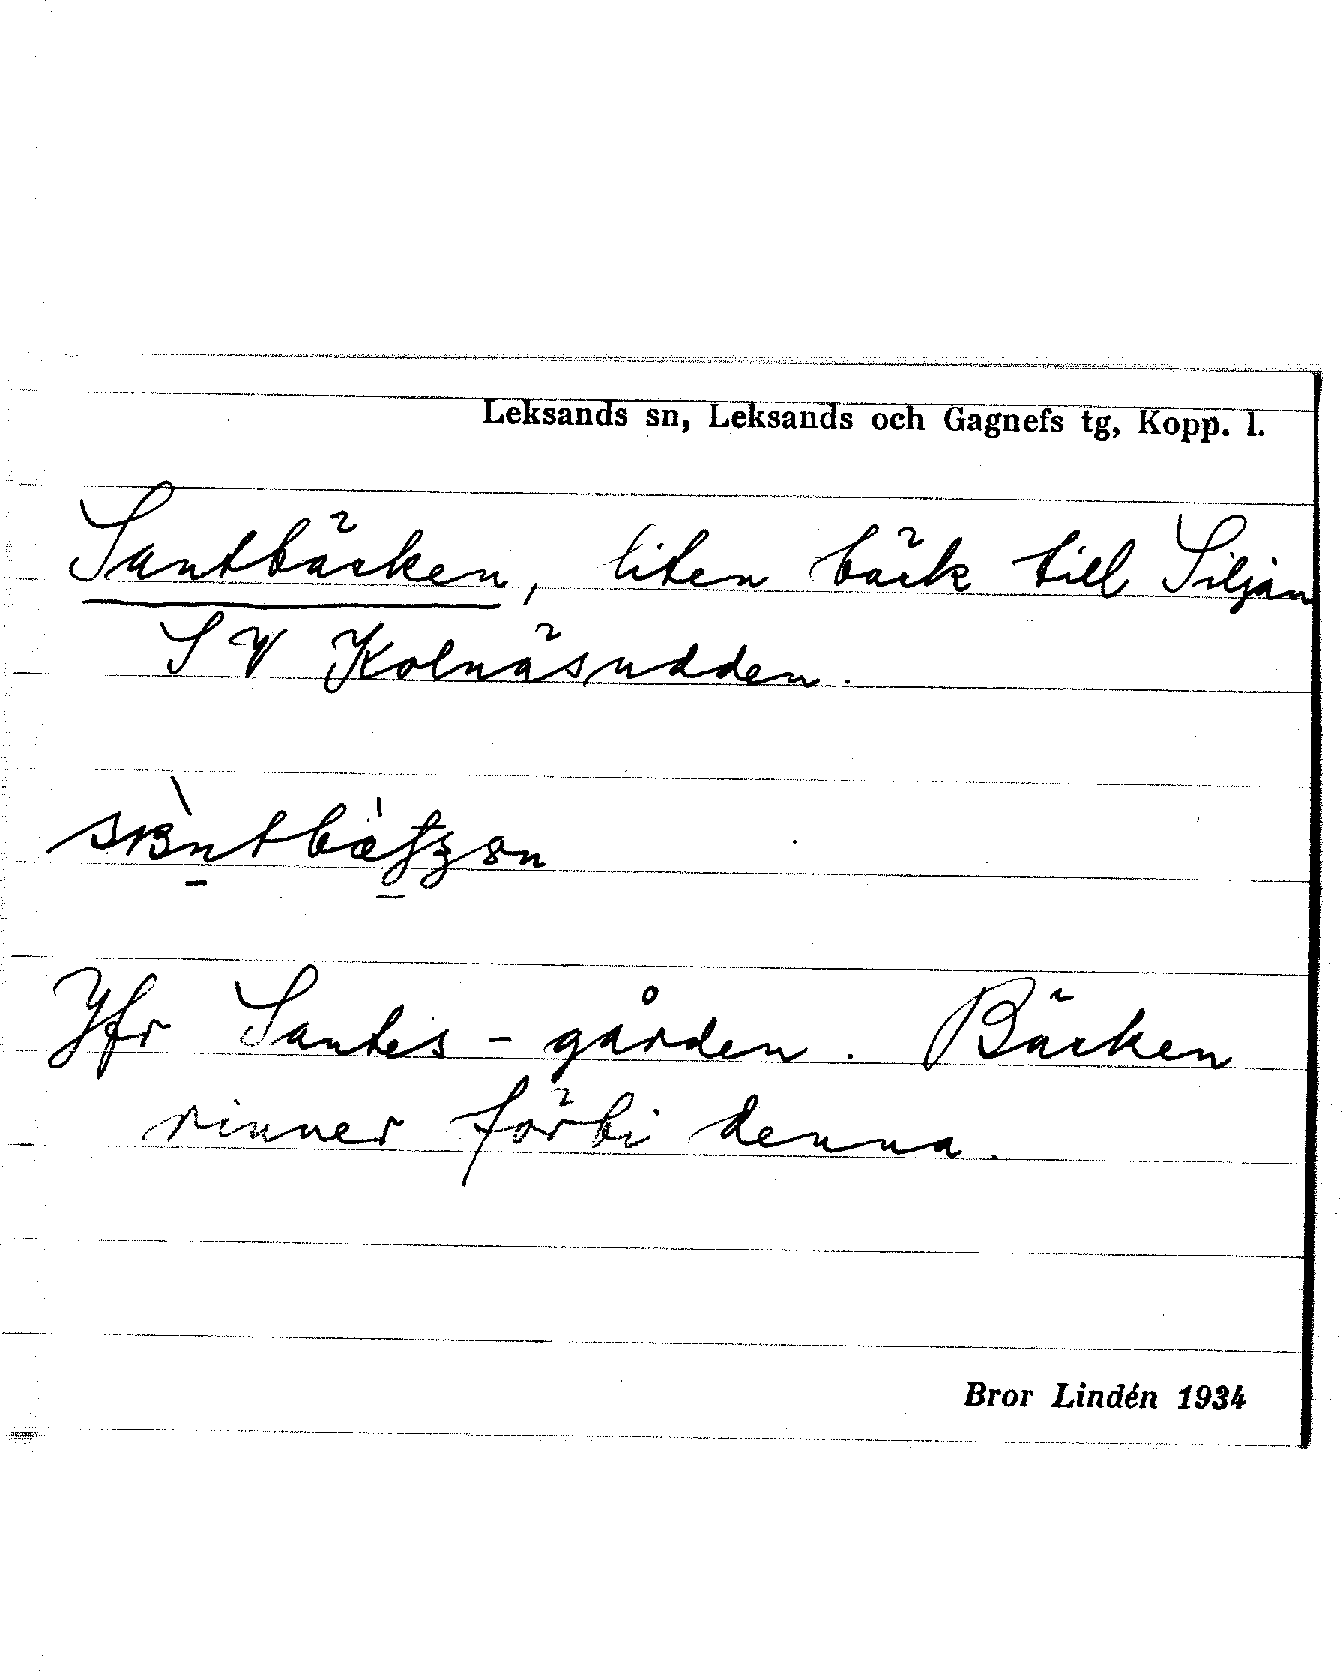 Leksands sn, Leksands och Gagnefs tg, Kopp. l.
Santbäcken, liten bäck till Siljan
SV Kolnäsudden.
Jfr Santis-gården. Bäcken
rinner förbi denna.
Bror Lindén 1934